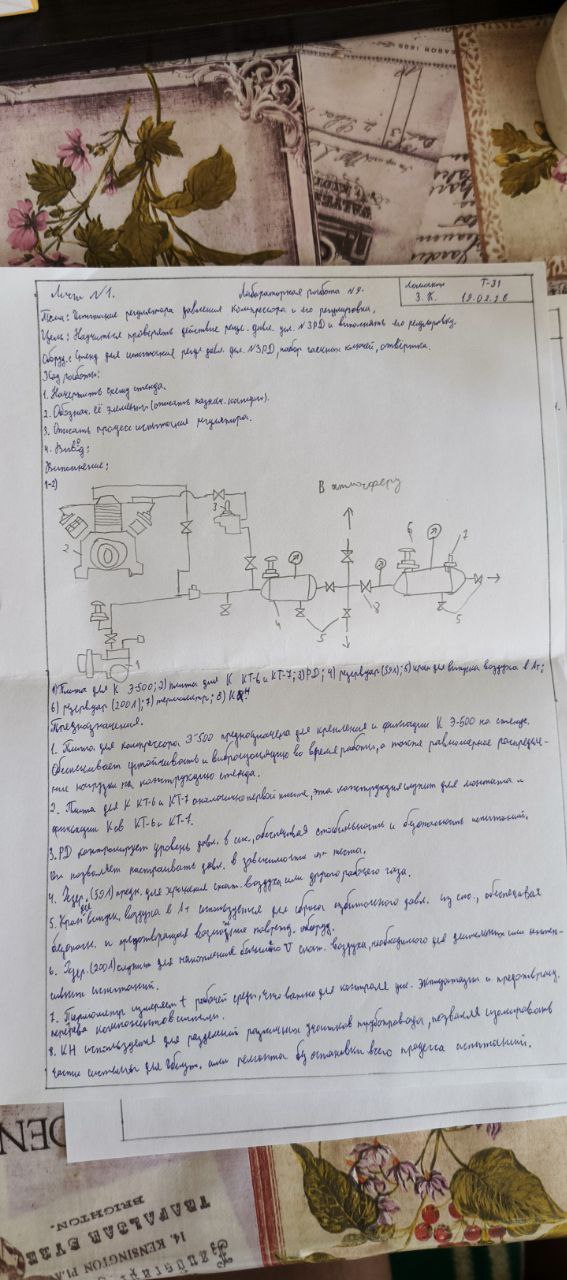 Лист №1.
Лабораторная работа №9.
Т-31
З. К. 19.02.26
Тема: Испытание регулятора давления компрессора и его регулировка.
Цель: Научиться проверять действие регул. давл. усл. №3РД и выполнять его регулировку.
Оборуд.: Стенд для испытания регул. давл. усл. №3РД, набор гаечных ключей, отвёртка.
Ход работы:
1. Начертить схему стенда.
2. Обознач. её элементы (описать назнач. каждого).
3. Описать процесс испытания регулятора.
4. Вывод:
Выполнение:
1-2)
В атмосферу
1
2
3
4
5
6
7
8
5
1) Плита для К Э-500; 2) плита для К КТ-6 и КТ-7; 3) РД; 4) резервуар (39л); 5) кран для выпуска воздуха в Ат;
6) резервуар (200л); 7) термометр; 8) КН
Предназначения.
1. Плита для компрессора Э-500 предназначена для крепления и фиксации К Э-500 на стенде.
Обеспечивает устойчивость и во время работы, а также равномерное распределе-
ние нагрузки на конструкцию стенда.
2. Плита для К КТ-6 и КТ-7 аналогично первой плите, эта конструкция служит для монтажа и
фиксации К-ов КТ-6 и КТ-7.
3. РД контролирует уровень давл. в сис, обеспечивая стабильность и безопасность испытаний.
Он позволяет настраивать давл. в зависимости от теста.
4. Резер. (39л) предн. для хранения сжат. воздуха или другого рабочего газа.
5. Кран для выпуск. воздуха в Ат используется для сброса избыточного давл. из сис., обеспечивая
безопасн. и предотвращая возможные поврежд. оборуд.
6. Резер. (200л) служит для накопления большого V сжат. воздуха, необходимого для длительных или интен-
сивных испытаний.
7. Термометр измеряет t рабочей среды, что важно для контроля эксплуатации и предотвращ.
перегрева компонентов системы.
8. КН используется для разделения различных участков трубопровода, позволяя изолировать
части системы для обслуж. или ремонта без остановки всего процесса испытаний.
14, KENSINGTON
BRIGHTON.